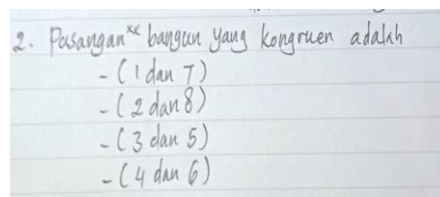 2. Pasangan** bangun yang kongruen adalah
- (1 dan 7)
- (2 dan 8)
- (3 dan 5)
- (4 dan 6)